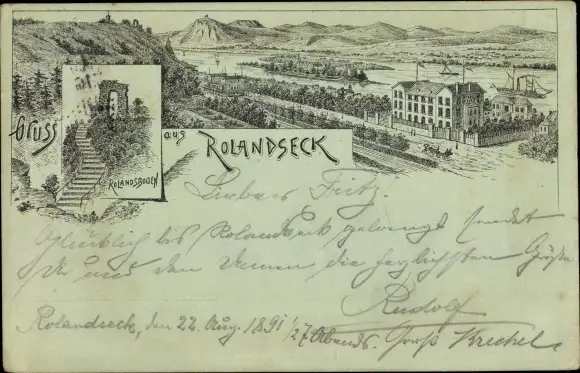 Gruss
aus
ROLANDSECK
ROLANDSBOGEN
Lieber Fritz.
Glücklich bis Rolandseck gelangt sendet
Dir und den Deinen die herzlichsten Grüße
Rudolf
Rolandseck, den 22. Aug. 1891 1/2 7 Abends.